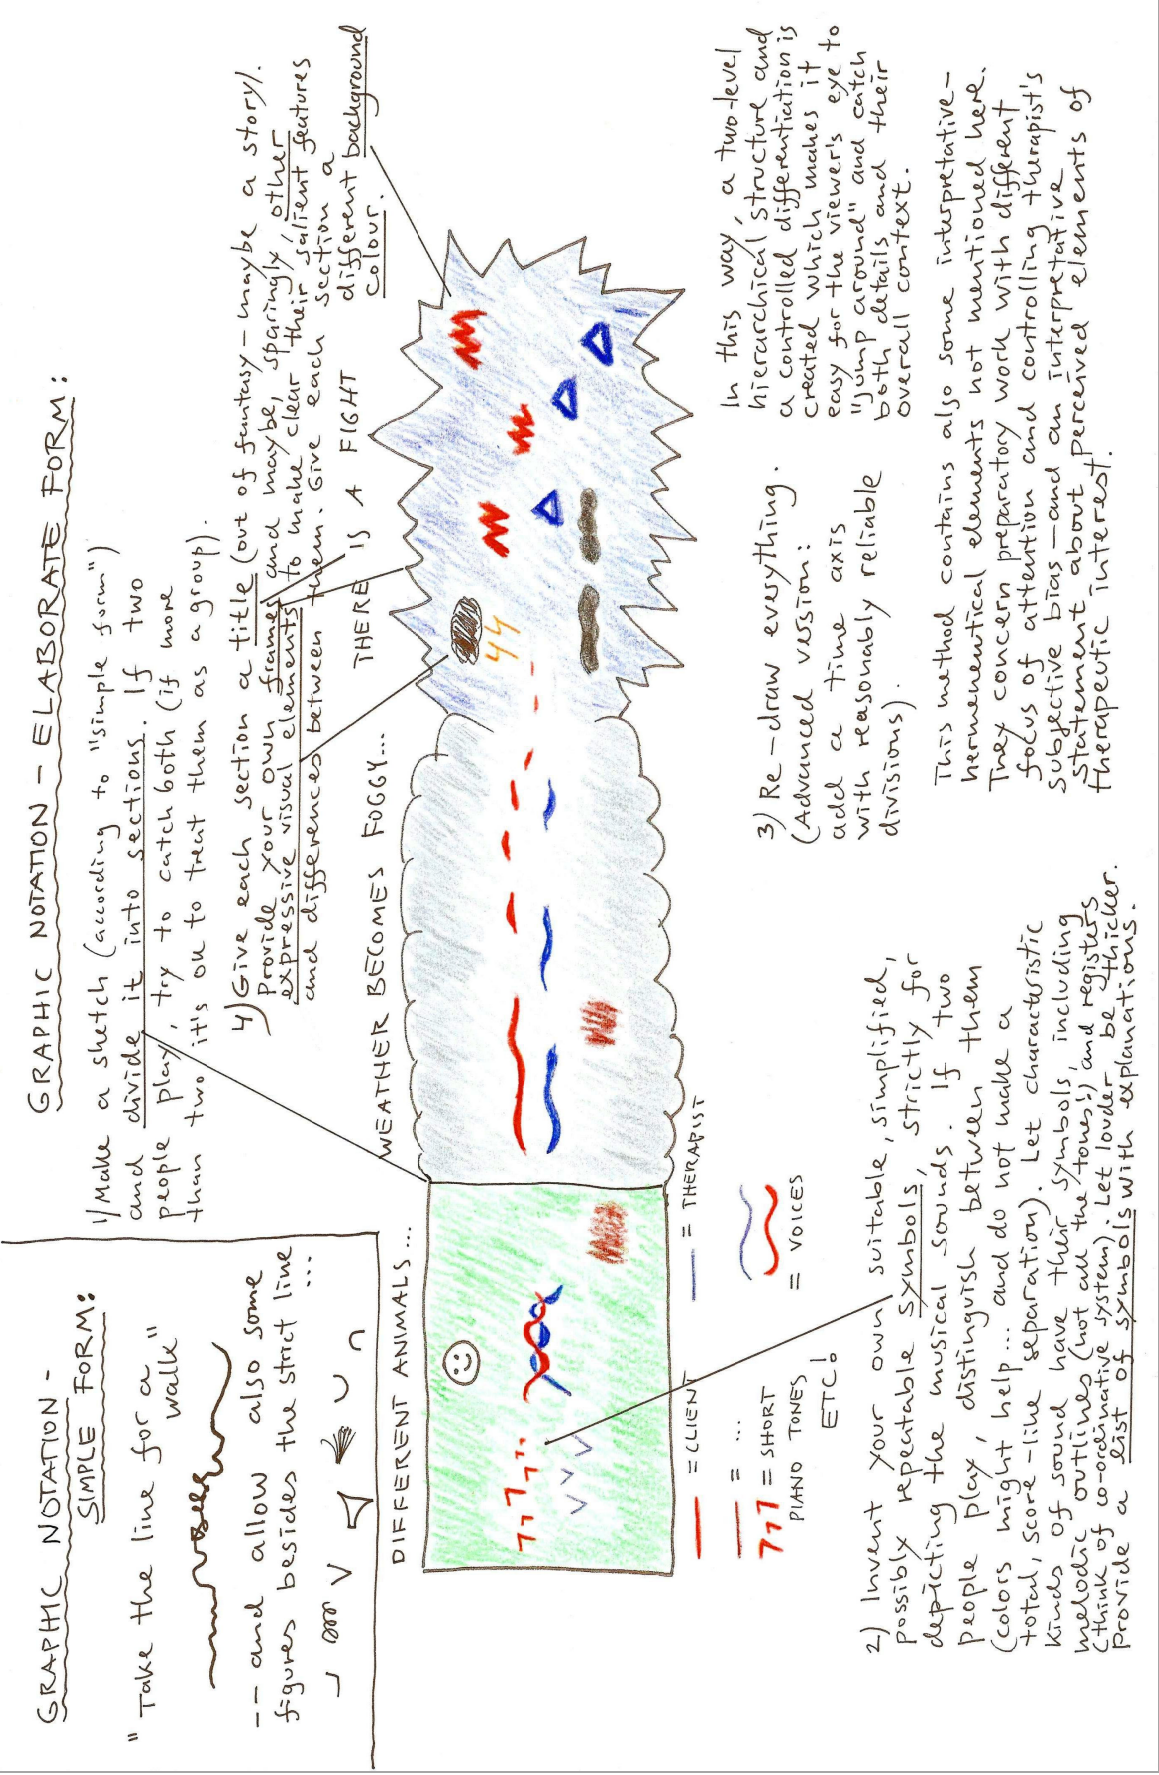 GRAPHIC NOTATION -
SIMPLE FORM:
"Take the line for a
walk"
-- and allow also some
figures besides the strict line
...
GRAPHIC NOTATION - ELABORATE FORM:
1) Make a sketch (according to "simple form")
and divide it into sections. If two
people play, try to catch both (if more
than two it's ok to treat them as a group).
4) Give each section a title (out of fantasy - maybe a story).
Provide your own frames and maybe, sparingly, other
expressive visual elements to make clear their salient features
and differences between them. Give each section a
different background
colour.
DIFFERENT ANIMALS ...
WEATHER BECOMES FOGGY...
THERE IS A FIGHT
= CLIENT
= THERAPIST
= ...
= SHORT
PIANO TONES
ETC!
= VOICES
2) Invent your own suitable, simplified,
possibly repeatable symbols, strictly for
depicting the musical sounds. If two
people play, distinguish between them
(colors might help... and do not make a
total, score-like separation). Let characteristic
kinds of sound have their symbols, including
melodic outlines (not all the tones!) and registers
(think of co-ordinative system). Let louder be thicker.
Provide a list of symbols with explanations.
3) Re-draw everything.
(Advanced version:
add a time axis
with reasonably reliable
divisions).
In this way, a two-level
hierarchical structure and
a controlled differentiation is
created which makes it
easy for the viewer's eye to
"jump around" and catch
both details and their
overall context.
This method contains also some interpretative-
hermeneutical elements not mentioned here.
They concern preparatory work with different
focus of attention and controlling therapist's
subjective bias - and an interpretative
statement about perceived elements of
therapeutic interest.